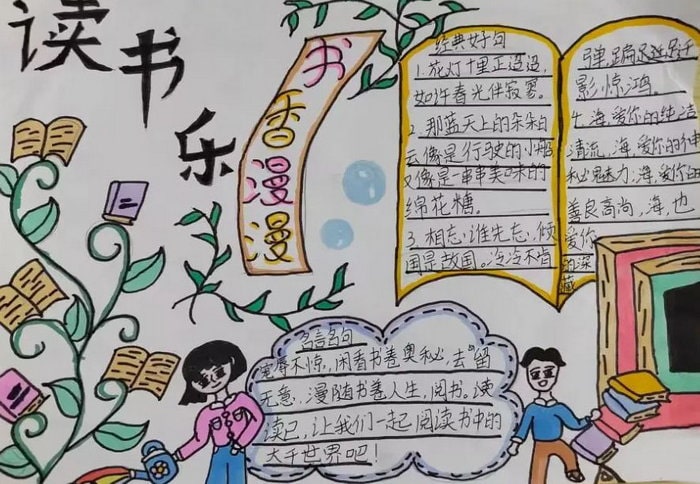 读书乐
书香漫漫
经典好句
1.花灯十里正迢迢,
如许春光伴寂寥。
2.那蓝天上的朵朵白
云像是行驶的小船
又像是一串串美味的
绵花糖。
3.相忘谁先忘,倾
国是故国。泠泠不肯
弹,蹁跹影
惊鸿。
4.海,爱你的纯洁
清流,海,爱你的神
秘魅力,海,爱你的
善良高尚,海,也
爱你
的深
名言名句
宠辱不惊,闲看书卷奥秘,去留
无意,漫随书卷人生,阅书,使
读己,让我们一起阅读书中的
大千世界吧!